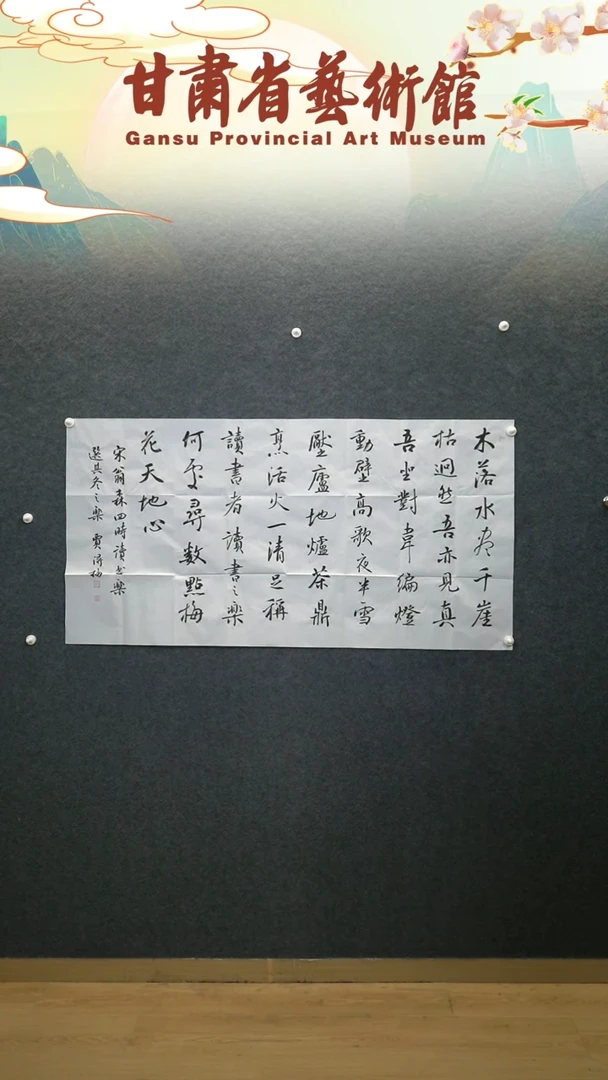 甘肅省藝術館
Gansu Provincial Art Museum
木落水尽千崖
枯迥然吾亦見真
吾坐對韋編燈
動壁高歌夜半雪
壓廬地爐茶鼎
烹活火一清足稱
讀書者讀書之樂
何處尋數點梅
花天地心
宋翁森四時讀书樂
選其冬之樂 賈